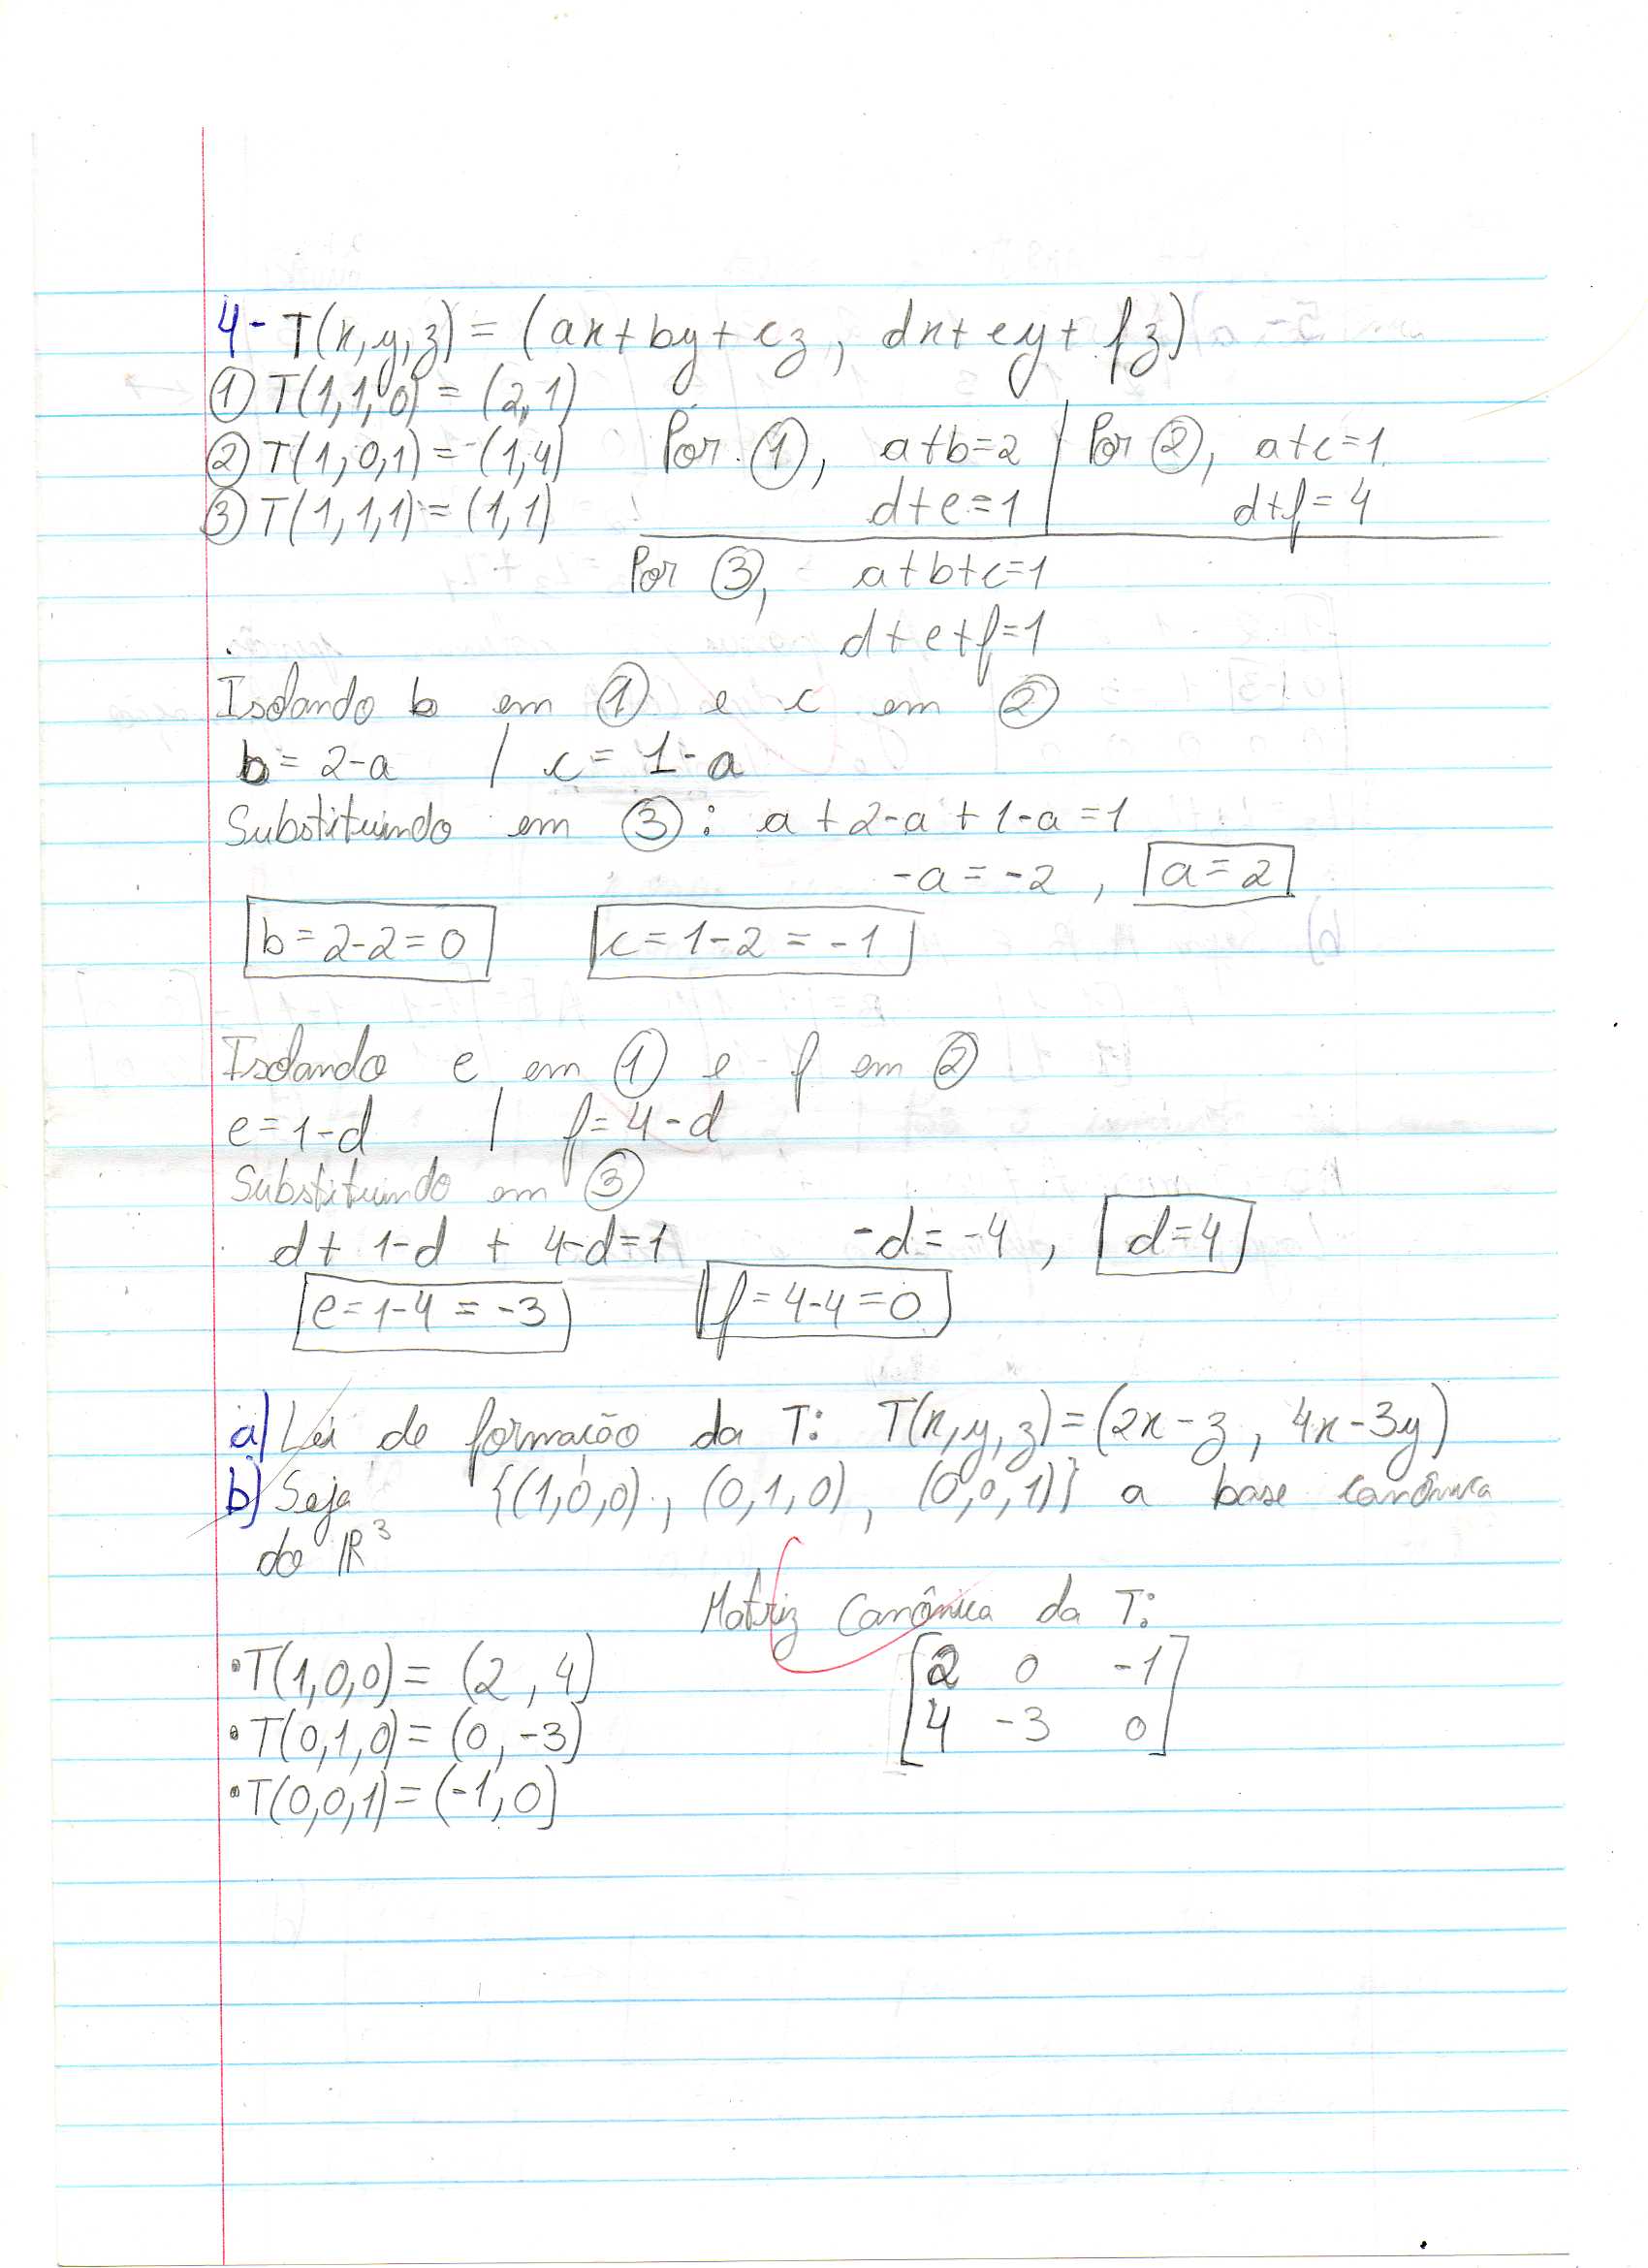 4- T(x,y,z) = (ax+by+cz, dx+ey+fz)
① T(1,1,0) = (2,1)
② T(1,0,1) = (1,4) Por ①, a+b=2 | Por ②, a+c=1
③ T(1,1,1) = (1,1) d+e=1 | d+f=4
Por ③, a+b+c=1
d+e+f=1
Isolando b em ① e c em ②
b = 2-a | c = 1-a
Substituindo em ③: a+2-a+1-a=1
-a = -2, a=2
b=2-2=0 c=1-2=-1
Isolando e em ① e f em ②
e=1-d | f=4-d
Substituindo em ③
d+1-d+4-d=1 -d=-4, d=4
e=1-4=-3 f=4-4=0
a) Lei de formação da T: T(x,y,z)=(2x-z, 4x-3y)
b) Seja {(1,0,0), (0,1,0), (0,0,1)} a base canônica
do ℝ³
Matriz Canônica da T:
•T(1,0,0) = (2,4) [2 0 -1]
•T(0,1,0) = (0,-3) [4 -3 0]
•T(0,0,1) = (-1,0)